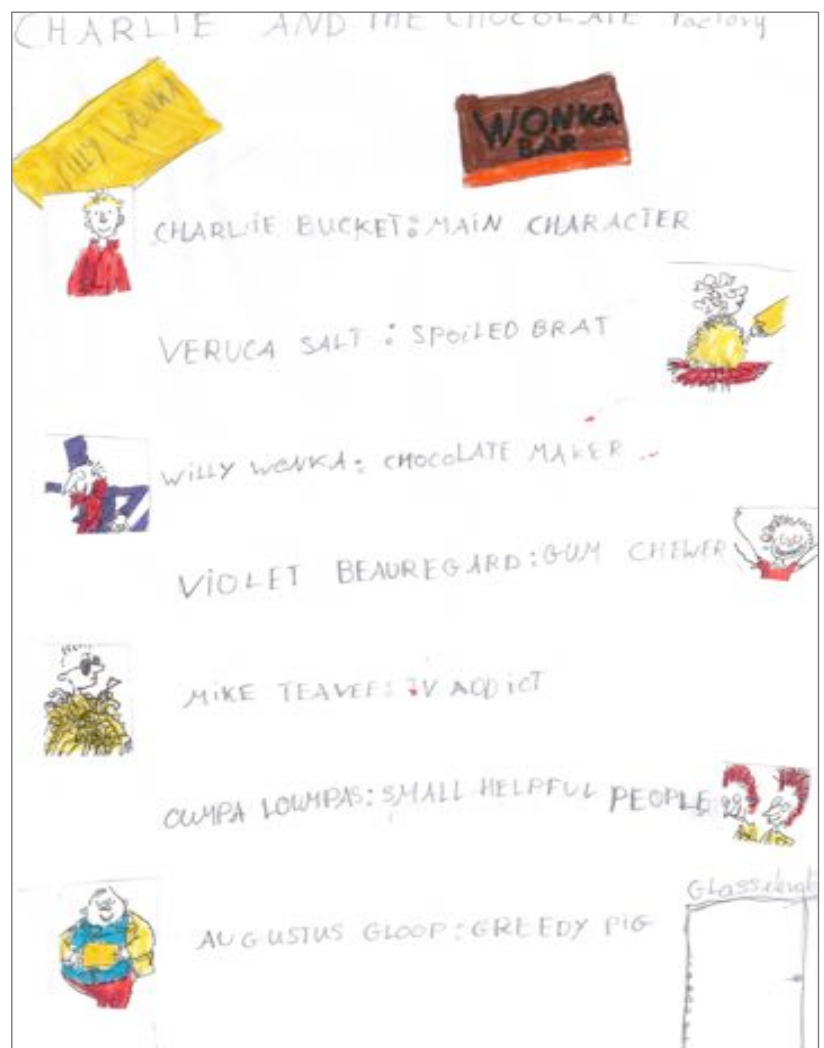 CHARLIE AND THE CHOCOLATE factory
WILLY WONKA
WONKA
BAR
CHARLiE BUCKET: MAiN CHARACTER
VERUCA SALT: SPOiLED BRAT
WiLLY WONKA: CHOCOLATE MAKER
ViOLET BEAUREGARD: GUM CHEWER
MiKE TEAVEE: TV ADDiCT
OUMPA LOUMPAS: SMALL HELPFUL PEOPLE
AUGUSTUS GLOOP: GREEDY PiG
GLass